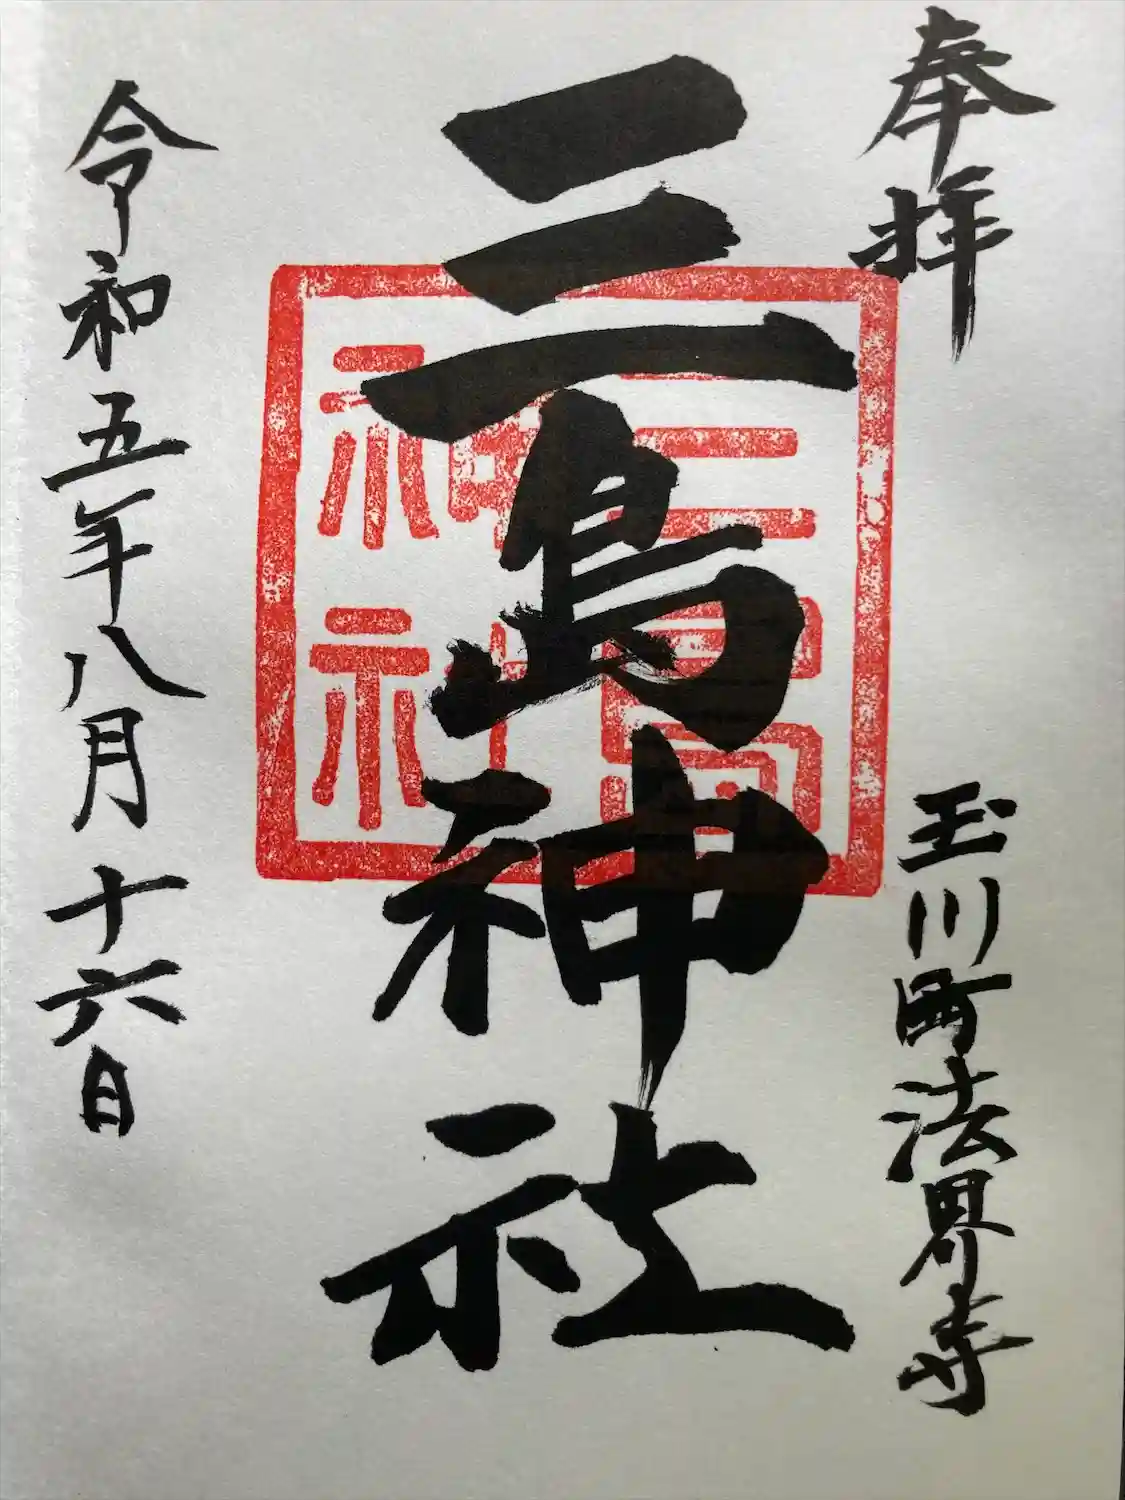 奉拝
玉川町法界寺
三島神社
三島
神社
令和五年八月十六日